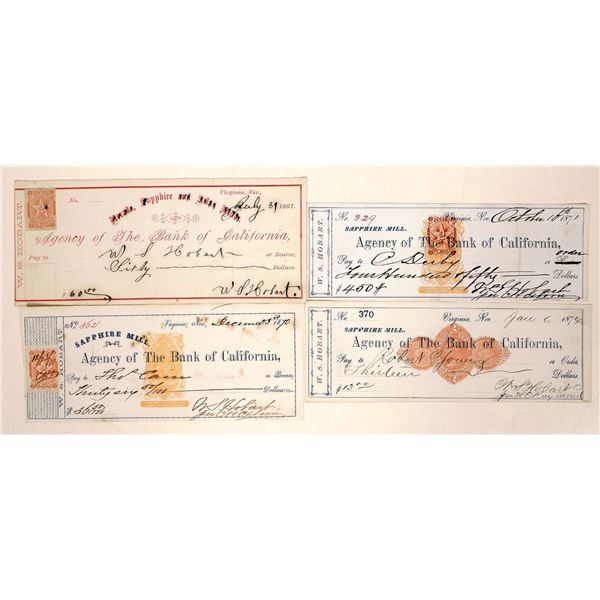 W. S. HOBART.
No.
Virginia, Nev., July 31 1867.
Agency of The Bank of California,
Pay to W S Hobart or Bearer,
Sixty Dollars.
$60.00 W. S. Hobart.
W. S. HOBART
No. 362
SAPPHIRE MILL.
Virginia, Nev., December 3d 1870
Agency of The Bank of California,
Pay to Thos Cain or Bearer,
Thirty six Dollars
W S Hobart
W. S. HOBART.
No. 329
SAPPHIRE MILL.
Virginia, Nev. October 10th 1871
Agency of The Bank of California,
order
Pay to C Derby or Bearer
Four Hundred & fifty Dollars.
$450 W S Hobart
W. S. HOBART.
No. 370
SAPPHIRE MILL.
Virginia, Nev. Jan 6 1874
Agency of The Bank of California,
Pay to Robert Young or Order,
Thirteen Dollars.
W S Hobart